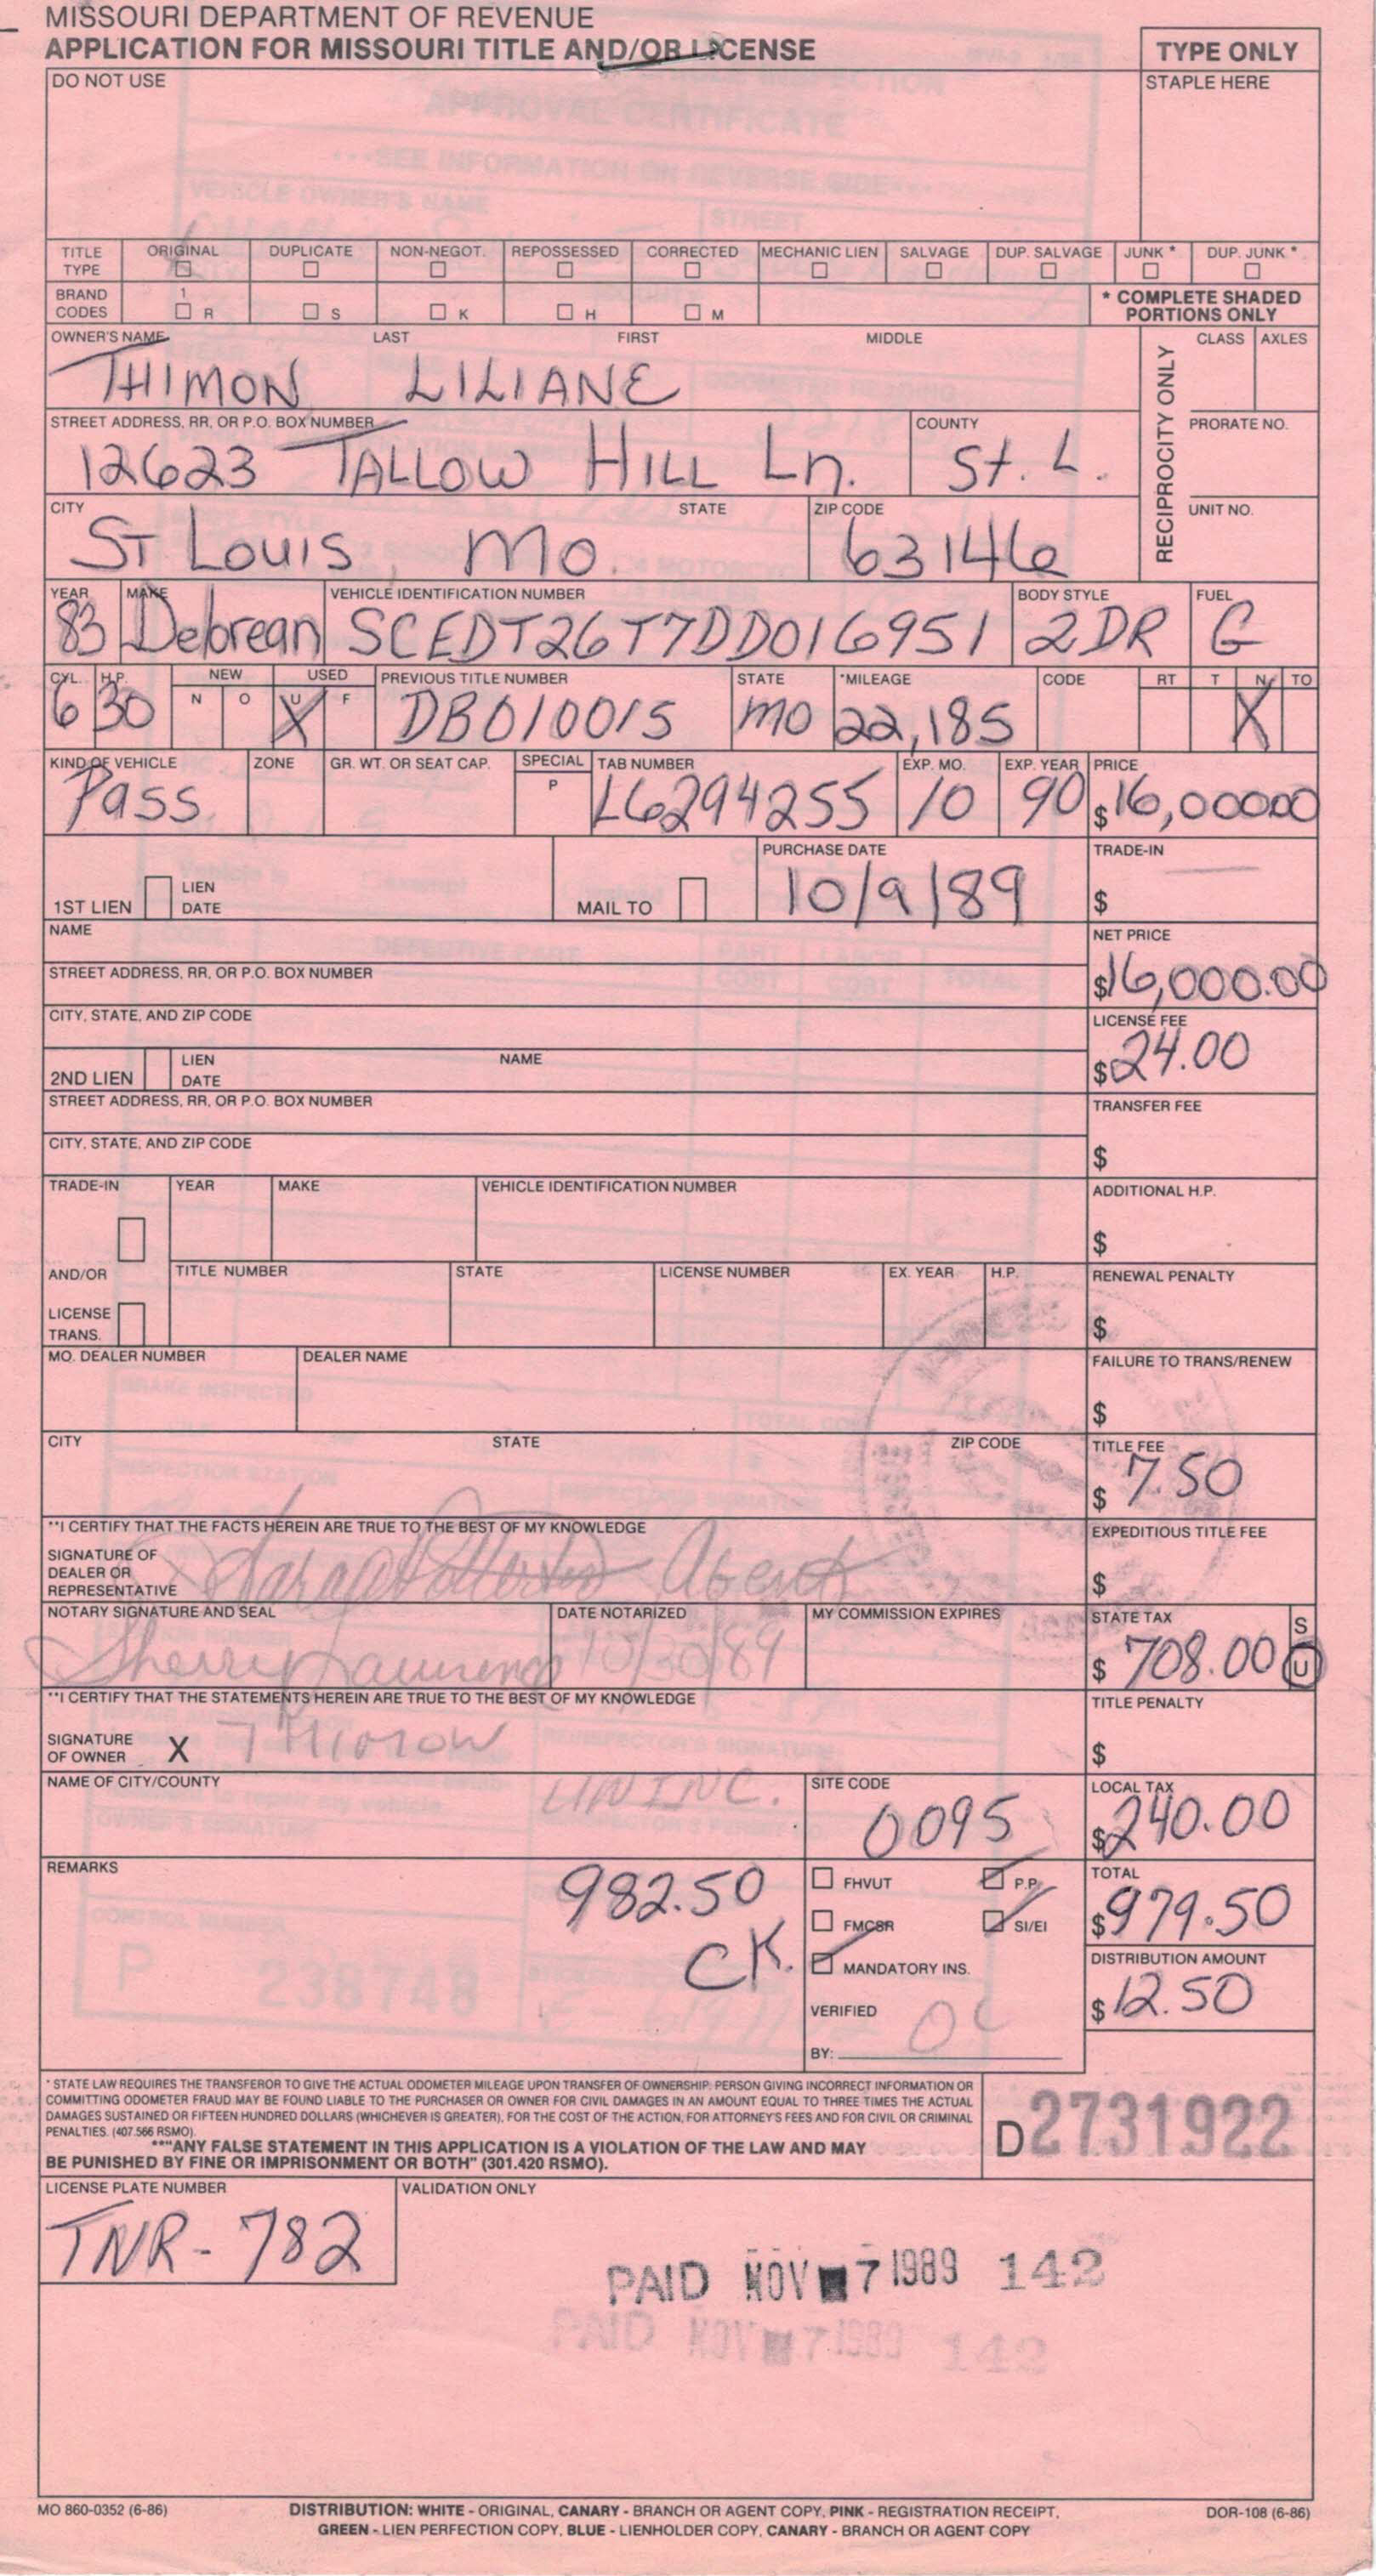 MISSOURI DEPARTMENT OF REVENUE
APPLICATION FOR MISSOURI TITLE AND/OR LICENSE
TYPE ONLY
DO NOT USE
STAPLE HERE
TITLE TYPE ORIGINAL DUPLICATE NON-NEGOT. REPOSSESSED CORRECTED MECHANIC LIEN SALVAGE DUP. SALVAGE JUNK * DUP. JUNK *
BRAND CODES 1 R S K H M
* COMPLETE SHADED PORTIONS ONLY
OWNER'S NAME LAST FIRST MIDDLE
THIMON LILIANE
RECIPROCITY ONLY
CLASS AXLES
STREET ADDRESS, RR, OR P.O. BOX NUMBER COUNTY PRORATE NO.
12623 TALLOW HILL Ln. St. L.
CITY STATE ZIP CODE UNIT NO.
ST LOUIS, MO. 63146
YEAR MAKE VEHICLE IDENTIFICATION NUMBER BODY STYLE FUEL
83 Debrean SCEDT26T7DD016951 2DR G
CYL. H.P. NEW USED PREVIOUS TITLE NUMBER STATE *MILEAGE CODE RT T N TO
N O U F
6 30 X DB010015 MO 22,185 X
KIND OF VEHICLE ZONE GR. WT. OR SEAT CAP. SPECIAL TAB NUMBER EXP. MO. EXP. YEAR PRICE
P
Pass L6294255 10 90 $16,00000
PURCHASE DATE TRADE-IN
1ST LIEN LIEN DATE MAIL TO 10/9/89 $
NAME NET PRICE
STREET ADDRESS, RR, OR P.O. BOX NUMBER $16,000.00
CITY, STATE, AND ZIP CODE LICENSE FEE
2ND LIEN LIEN DATE NAME $24.00
STREET ADDRESS, RR, OR P.O. BOX NUMBER TRANSFER FEE
CITY, STATE, AND ZIP CODE $
TRADE-IN YEAR MAKE VEHICLE IDENTIFICATION NUMBER ADDITIONAL H.P.
$
AND/OR TITLE NUMBER STATE LICENSE NUMBER EX. YEAR H.P. RENEWAL PENALTY
LICENSE TRANS. $
MO. DEALER NUMBER DEALER NAME FAILURE TO TRANS/RENEW
$
CITY STATE ZIP CODE TITLE FEE
$ 7.50
**I CERTIFY THAT THE FACTS HEREIN ARE TRUE TO THE BEST OF MY KNOWLEDGE EXPEDITIOUS TITLE FEE
SIGNATURE OF DEALER OR REPRESENTATIVE Agent $
NOTARY SIGNATURE AND SEAL DATE NOTARIZED MY COMMISSION EXPIRES STATE TAX S
Sherry Lawrence 10/30/89 $ 708.00 U
**I CERTIFY THAT THE STATEMENTS HEREIN ARE TRUE TO THE BEST OF MY KNOWLEDGE TITLE PENALTY
SIGNATURE OF OWNER X THIMON $
NAME OF CITY/COUNTY SITE CODE LOCAL TAX
UNINC. 0095 $240.00
REMARKS FHVUT P.P. TOTAL
982.50 FMCSR SI/EI $979.50
CK. MANDATORY INS. DISTRIBUTION AMOUNT
VERIFIED $12.50
BY:
* STATE LAW REQUIRES THE TRANSFEROR TO GIVE THE ACTUAL ODOMETER MILEAGE UPON TRANSFER OF OWNERSHIP. PERSON GIVING INCORRECT INFORMATION OR
COMMITTING ODOMETER FRAUD MAY BE FOUND LIABLE TO THE PURCHASER OR OWNER FOR CIVIL DAMAGES IN AN AMOUNT EQUAL TO THREE TIMES THE ACTUAL
DAMAGES SUSTAINED OR FIFTEEN HUNDRED DOLLARS (WHICHEVER IS GREATER), FOR THE COST OF THE ACTION, FOR ATTORNEY'S FEES AND FOR CIVIL OR CRIMINAL
PENALTIES. (407.566 RSMO).
**"ANY FALSE STATEMENT IN THIS APPLICATION IS A VIOLATION OF THE LAW AND MAY
BE PUNISHED BY FINE OR IMPRISONMENT OR BOTH" (301.420 RSMO).
D2731922
LICENSE PLATE NUMBER VALIDATION ONLY
TNR-782
PAID NOV 7 1989 142
PAID NOV 7 1989 142
MO 860-0352 (6-86)
DISTRIBUTION: WHITE - ORIGINAL, CANARY - BRANCH OR AGENT COPY, PINK - REGISTRATION RECEIPT,
GREEN - LIEN PERFECTION COPY, BLUE - LIENHOLDER COPY, CANARY - BRANCH OR AGENT COPY
DOR-108 (6-86)